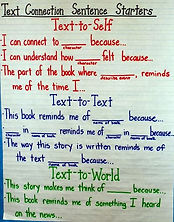 Text Connection Sentence Starters
Text-to-Self
-I can connect to ______ because...
character
-I can understand how ______ felt because...
character
-The part of the book where ______ reminds
describe event
me of the time I...
Text-to-Text
-This book reminds me of ______ because...
name of book
- ______ in ______ reminds me of ______ in ______ because...
name of book
name of book
-The way this story is written reminds me of
the text ______ because...
name of book
Text-to-World
-This story makes me think of ______ because...
-This book reminds me of something I heard
on the news...